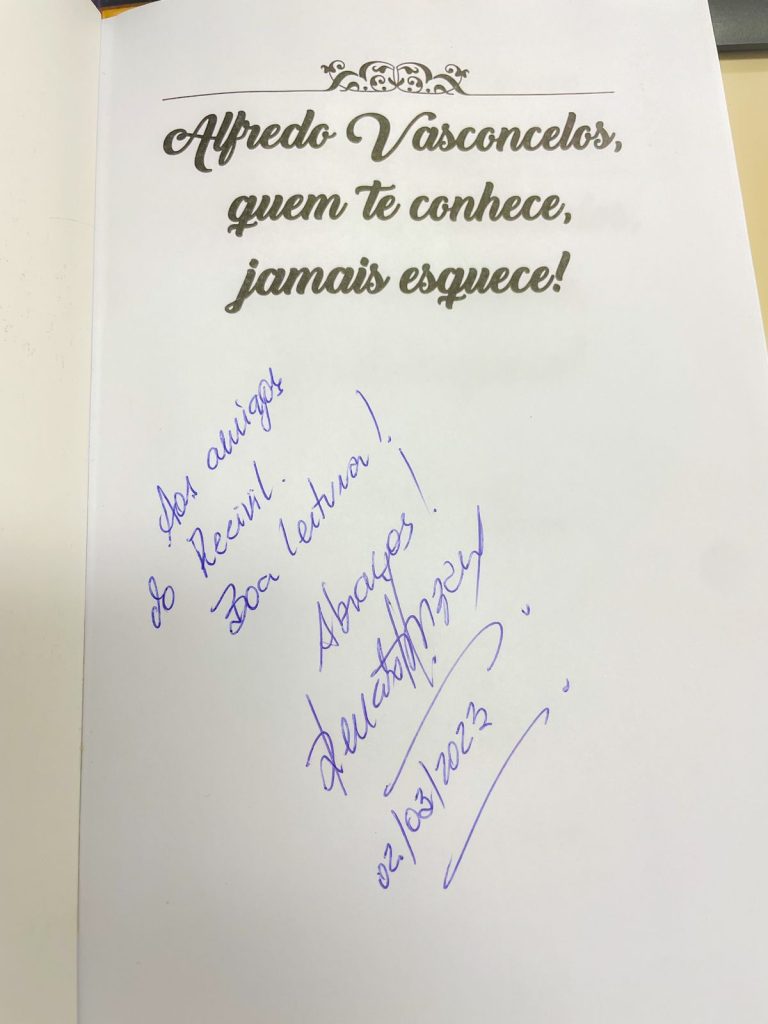 Alfredo Vasconcelos,
quem te conhece,
jamais esquece!
Aos amigos
do Recivil.
Boa leitura!
Abraços!
Renato
02/03/2023